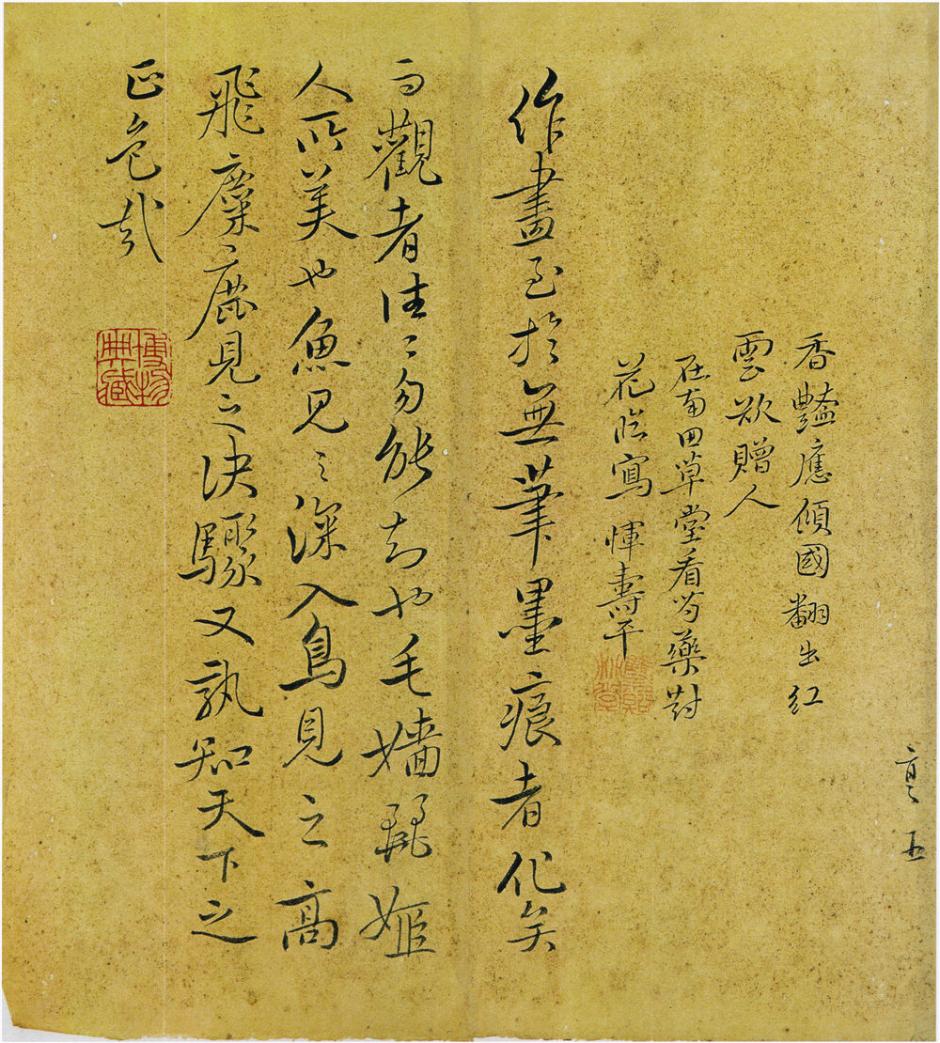 香豔應傾國翻出紅
雲欲贈人
在南田草堂看芍藥對
花臨寫 惲壽平
作畫至於無筆墨痕者化矣
而觀者往〻勿能知也毛嬙驪姬
人所美也魚見之深入鳥見之高
飛麋鹿見之決驟又孰知天下之
正色哉
博物
典藏